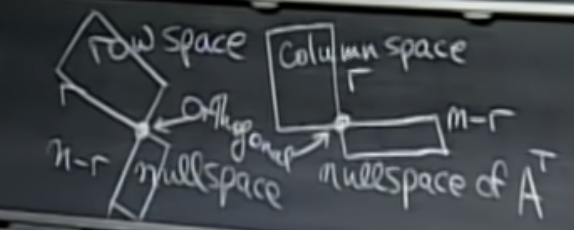 row space
r
n-r
nullspace
orthogonal
column space
r
m-r
nullspace of Aᵀ